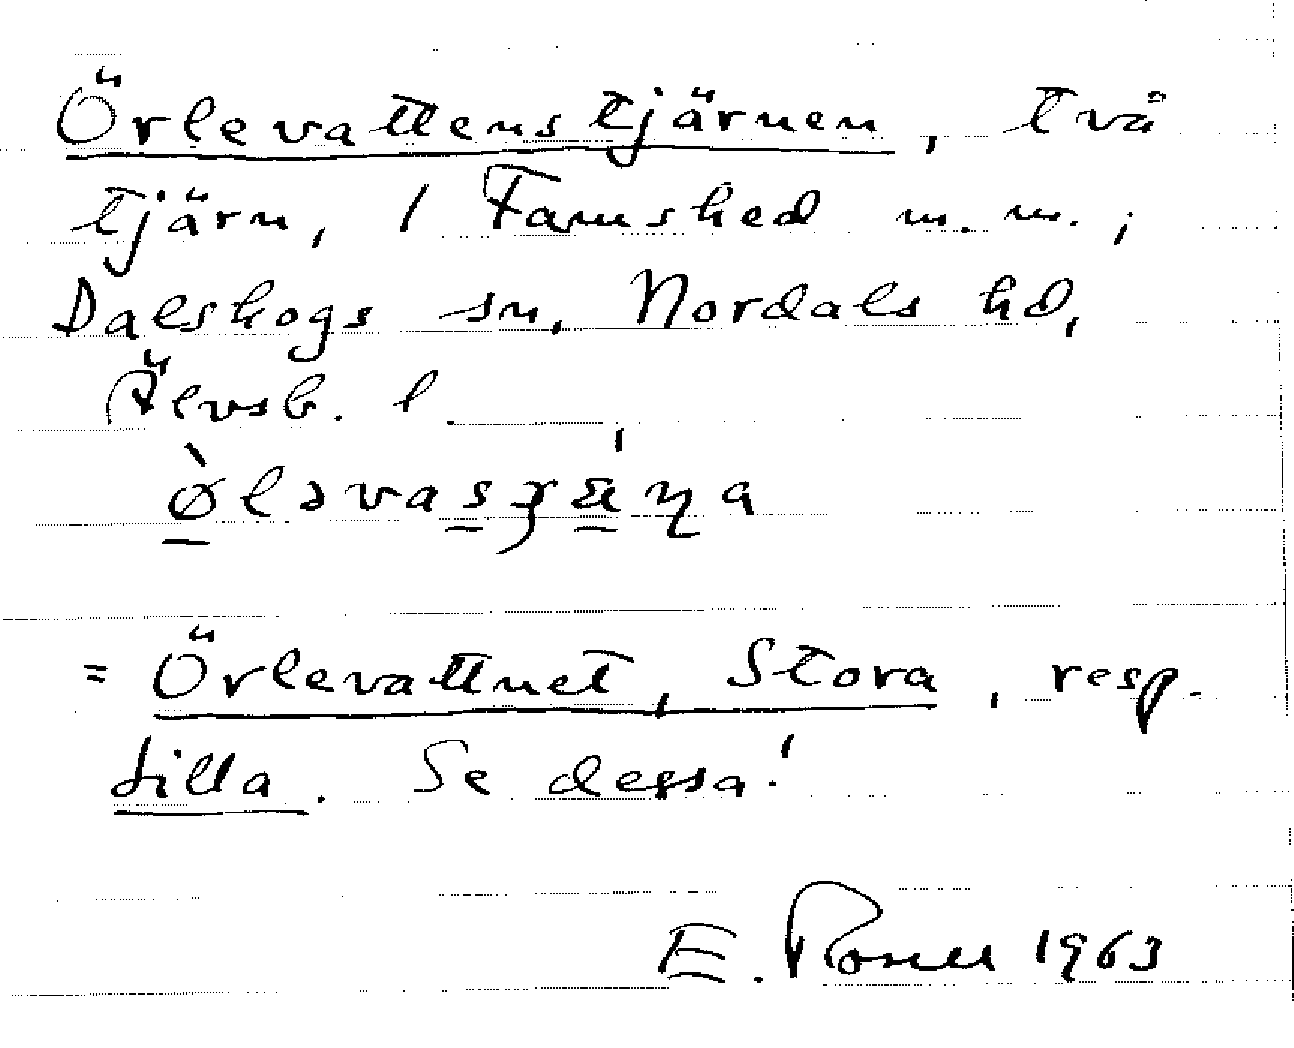 Örlevattenstjärnen, två
tjärn, / Famshed m.m.;
Dalskogs sn, Nordals hd,
Älvsb. l
= Örlevattnet, Stora, resp.
Lilla. Se dessa!
E. 1963